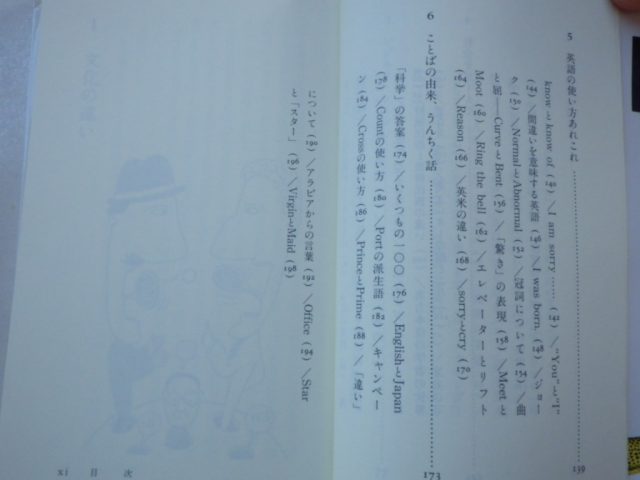 5 英語の使い方あれこれ……139
know と know of (141) ／I am sorry …… (141) ／“You” と “I”
(141) ／間違いを意味する英語 (146) ／I was born. (148) ／ジョー
ク (150) ／Normal と Abnormal (152) ／冠詞について (154) ／曲
と屈――Curve と Bent (156) ／「驚き」の表現 (158) ／Meet と
Moot (160) ／Ring the bell (162) ／エレベーターとリフト
(164) ／Reason (166) ／英米の違い (168) ／sorry と cry (170)
6 ことばの由来、うんちく話……173
「科学」の答案 (174) ／いくつもの一〇〇 (176) ／English と Japan
(178) ／Count の使い方 (180) ／Port の派生語 (182) ／キャンペー
ン (184) ／Cross の使い方 (186) ／Prince と Prime (188) ／「違い」
について (190) ／アラビアからの言葉 (192) ／Office (194) ／Star
と「スター」 (196) ／Virgin と Maid (198)
xi 目 次